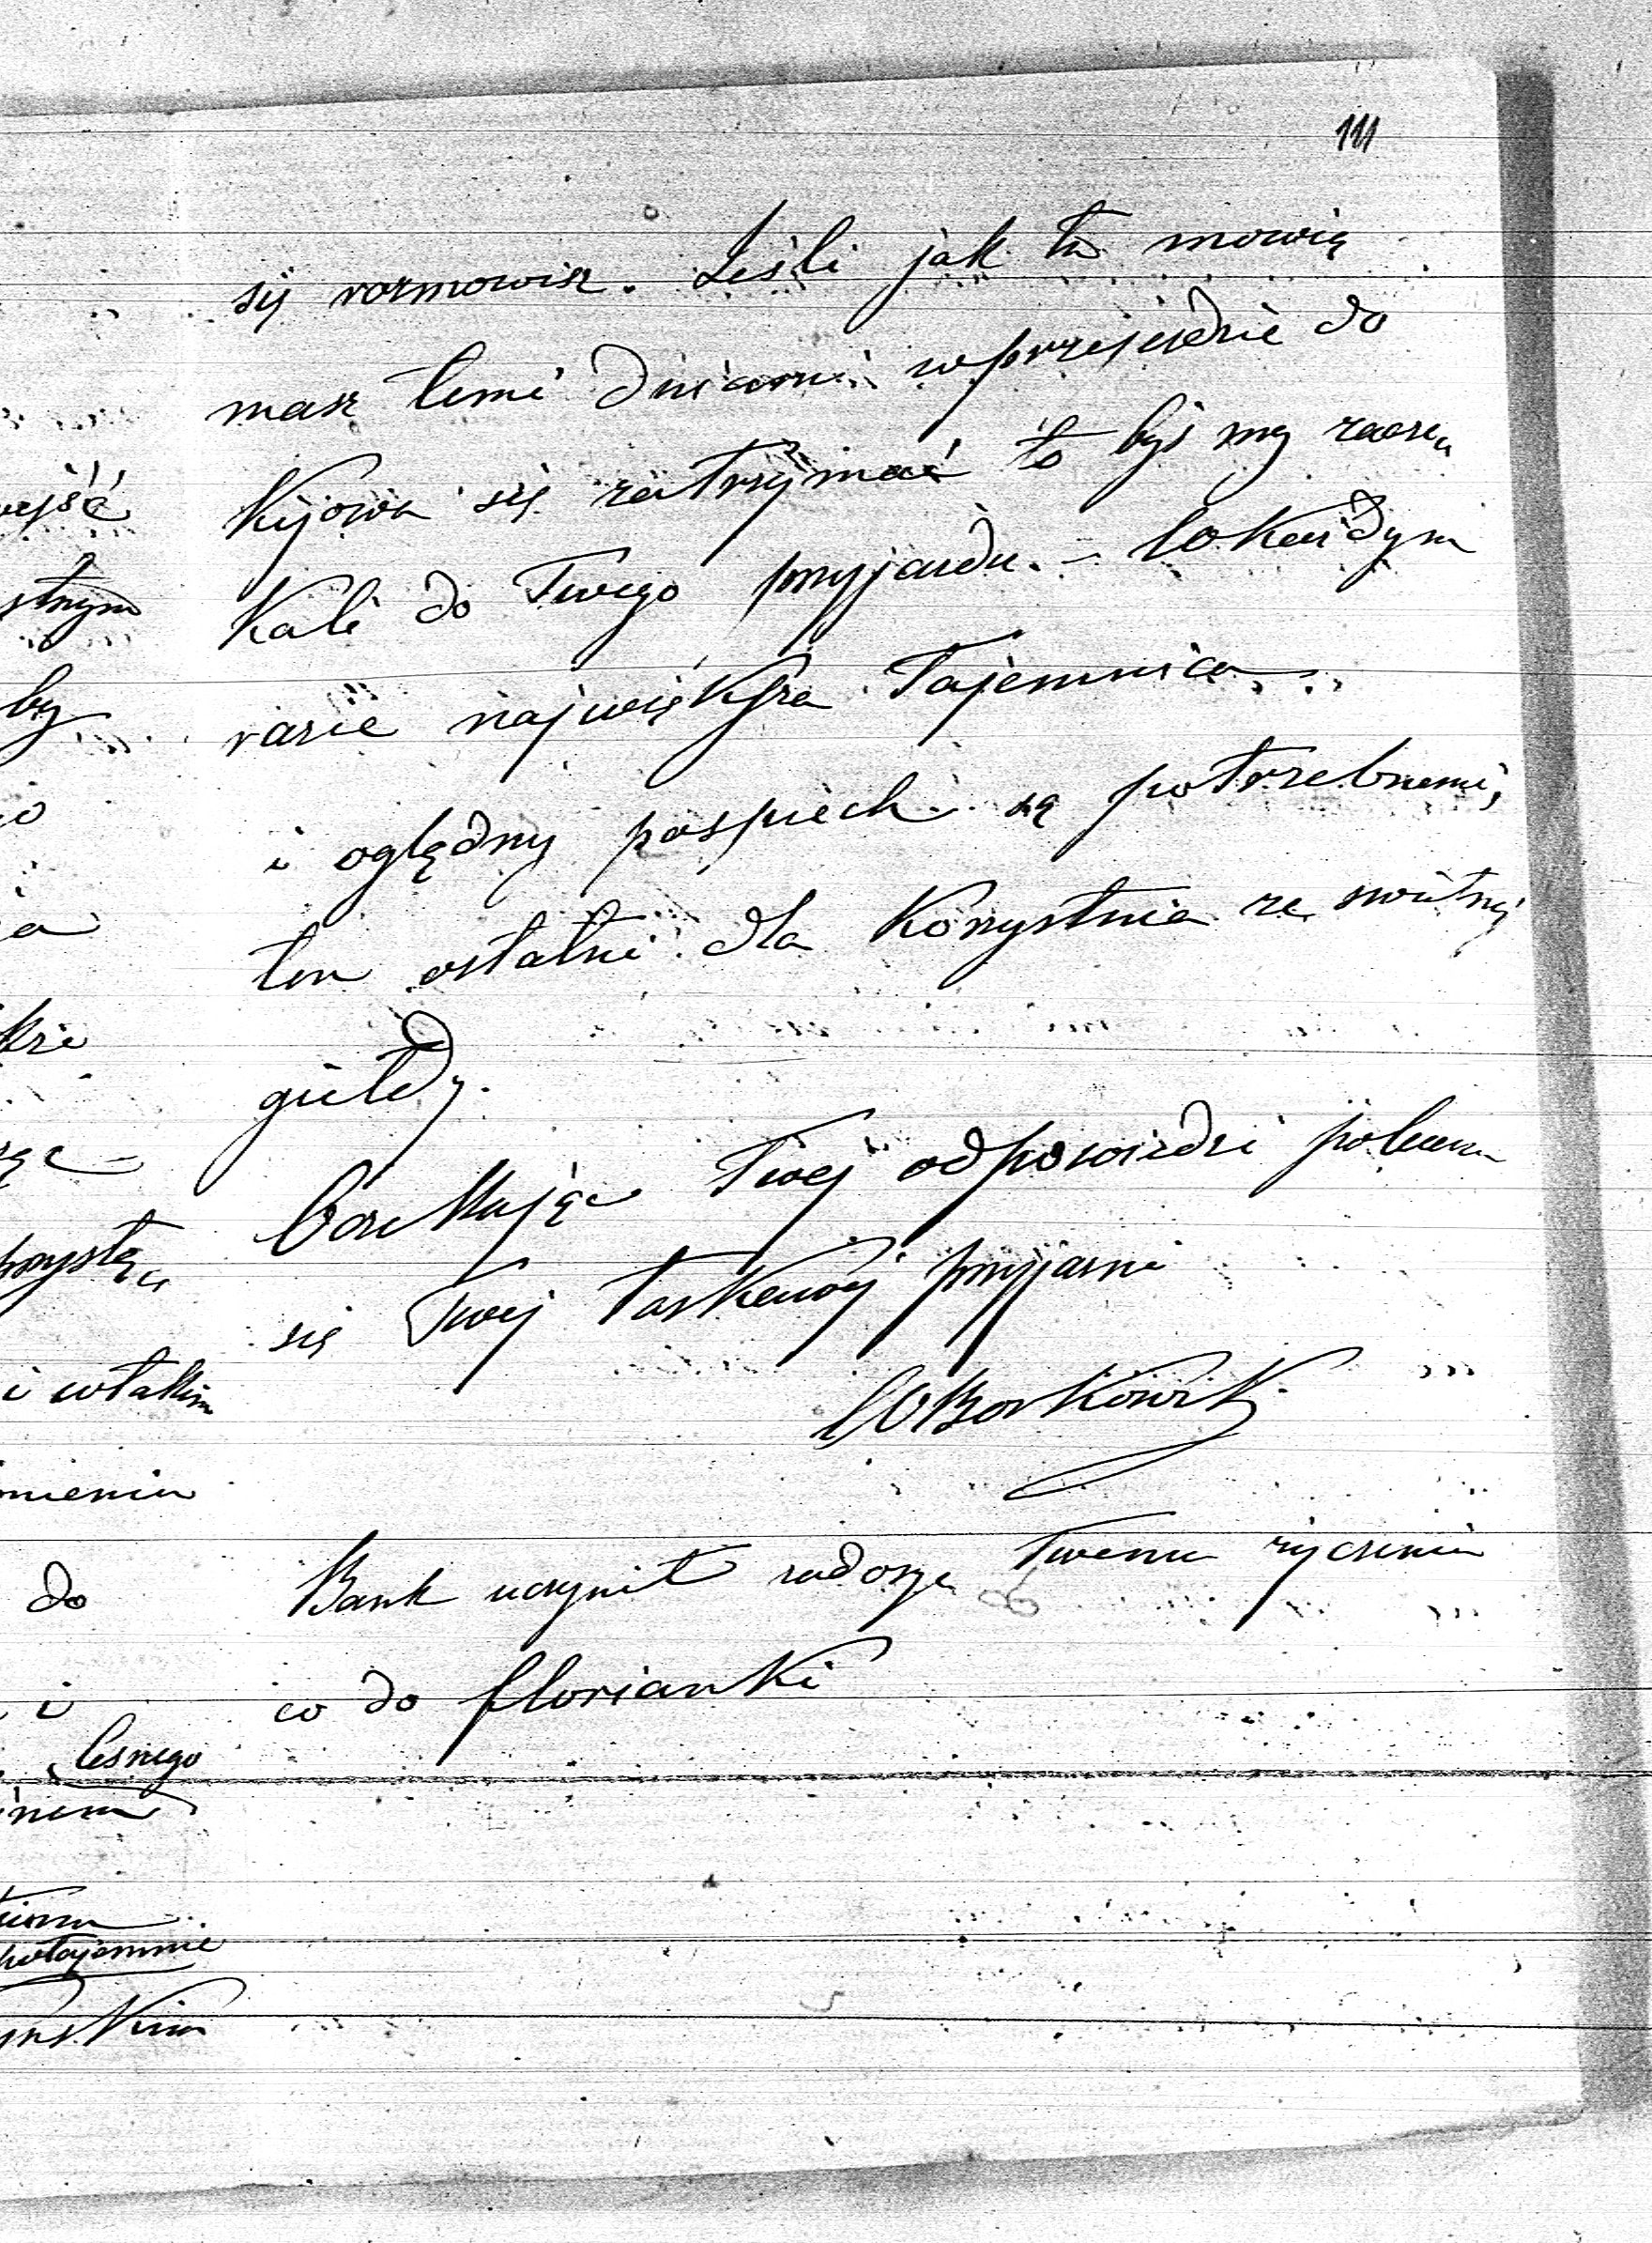 111
się rozmowisz. Jeśli jak to mowią
masz temi dniami w przejezdzie do
Kijowa się zatrzymać to byś my zacze
kali do Twego przyjazdu. – W każdym
razie największa Tajemnica
i oględny pospiech są potrzebnemi,
ten ostatni dla korzystnia ze
giełdy.
Oczekując Twej odpowiedzi polecam
się Twej łaskawej przyjaźni
Bank uczynił zadosyć Twemu życzeniu
co do florianki
ejść
stnym
by
do
i
lesnego
potajemnie